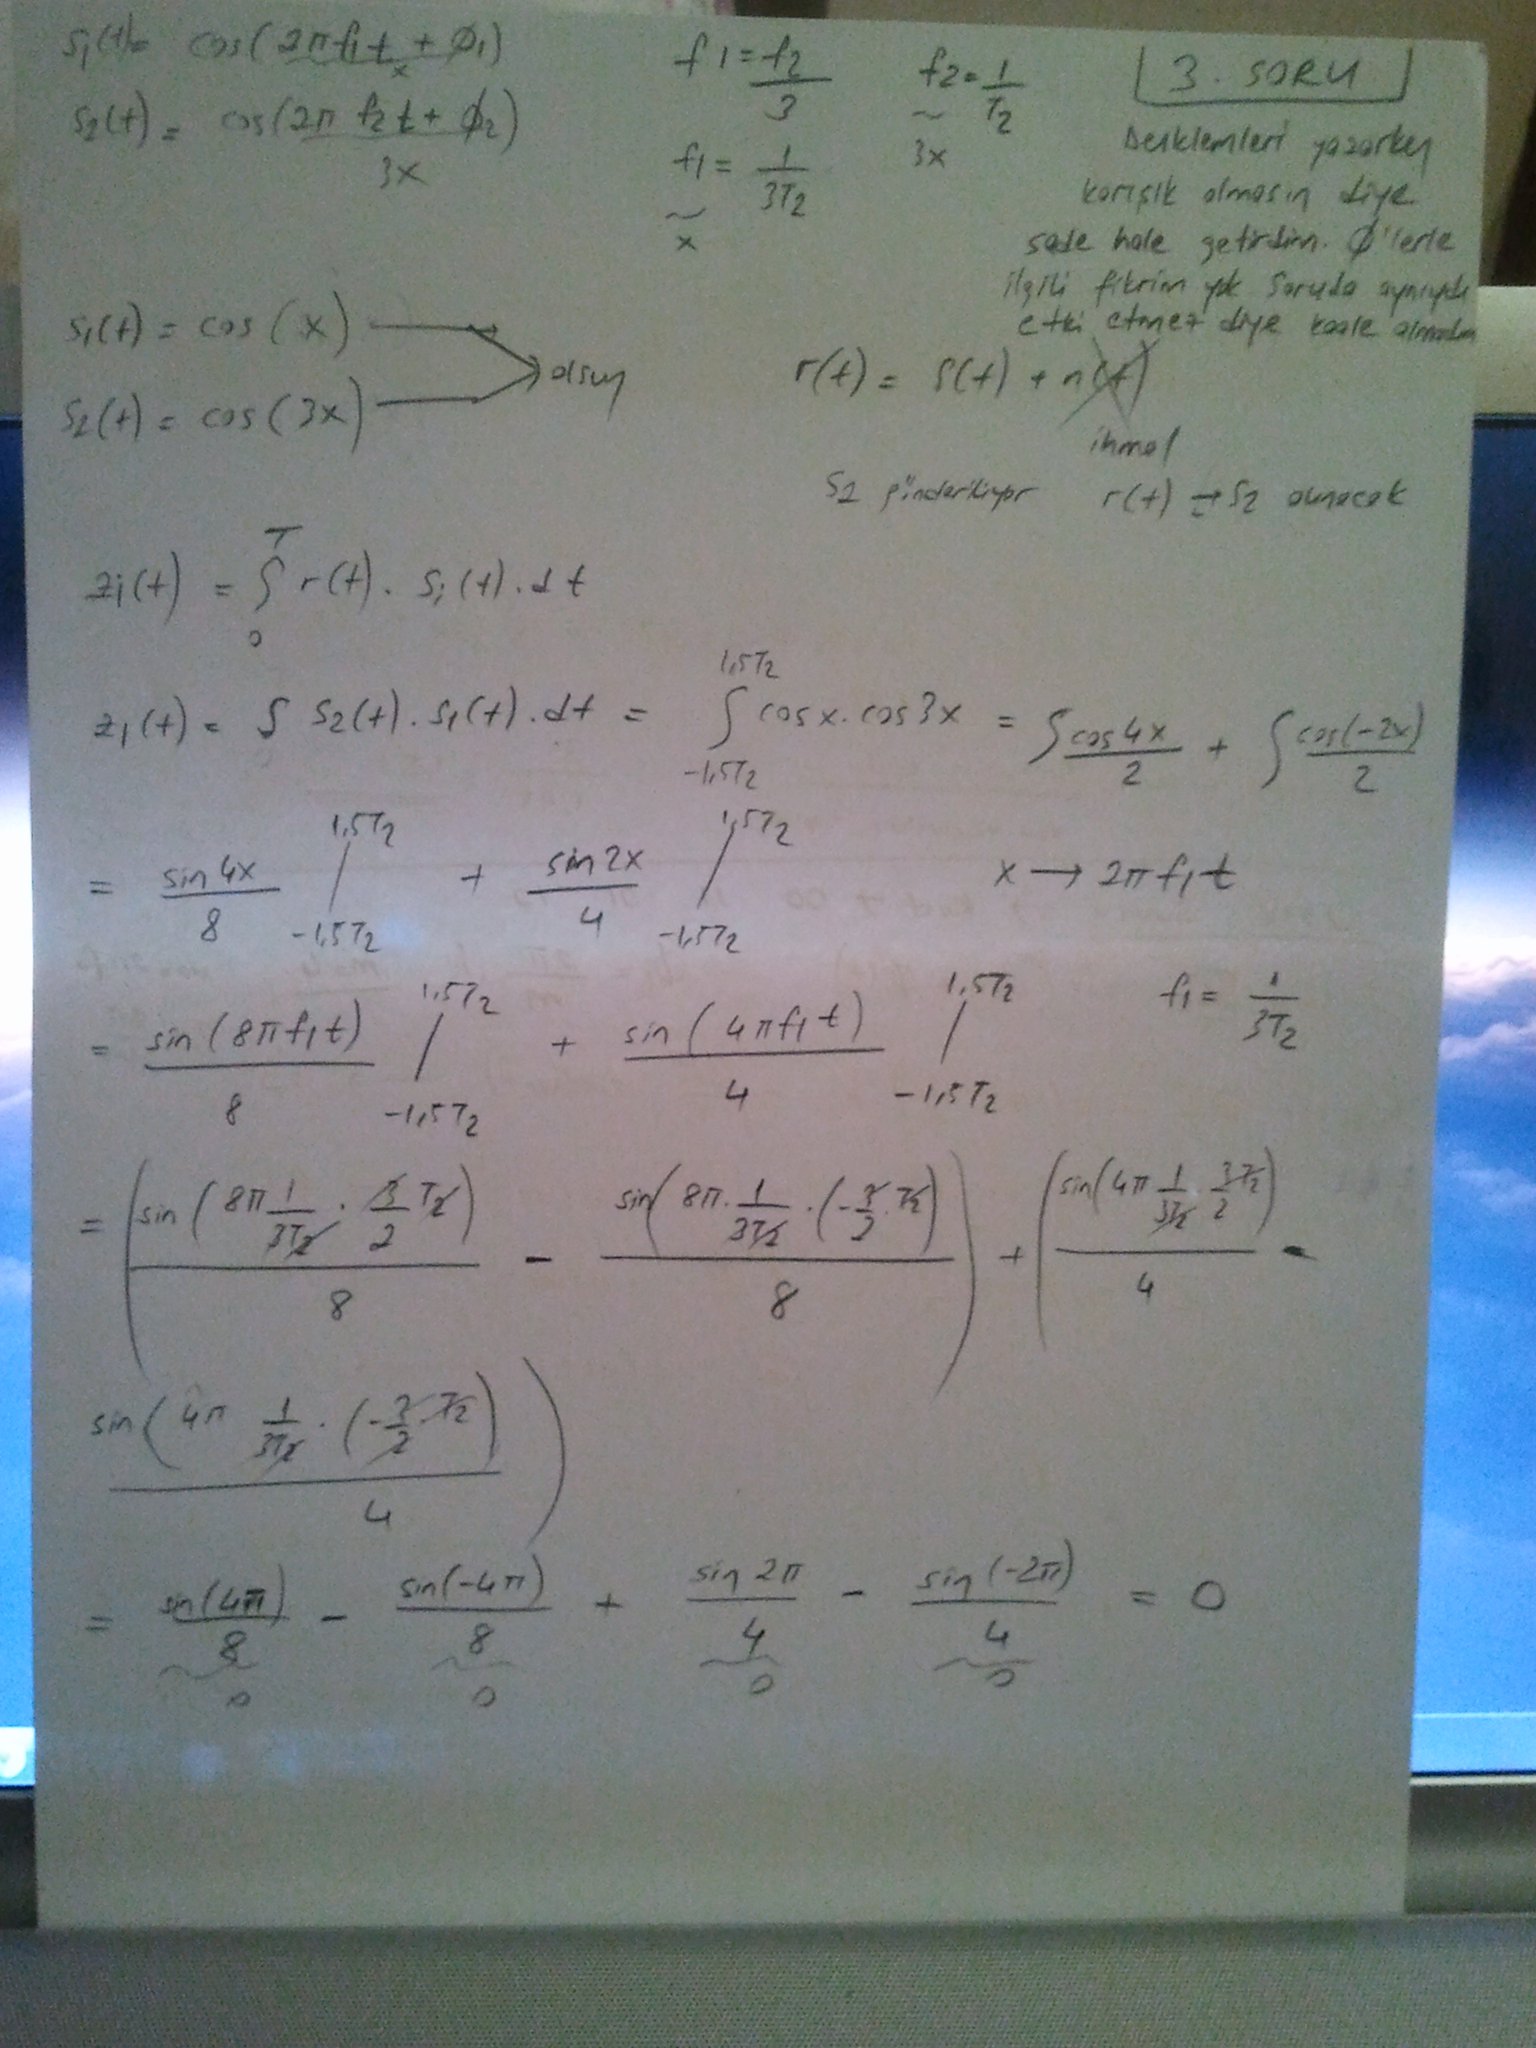 s₁(t) = cos(2πf₁t + φ₁)
x
s₂(t) = cos(2π f₂t + φ₂)
3x
f1 = f2/3
f2 = 1/T2
3x
f1 = 1/3T2
x
3. SORU
Denklemleri yazarken
karışık olmasın diye
sade hale getirdim. φ'lerle
ilgili fikrim yok Soruda aynıydı
etki etmez diye kaale almadım
s₁(t) = cos(x)
s₂(t) = cos(3x)
olsun
r(t) = s(t) + n(t)
ihmal
s2 gönderiliyor r(t) → s2 alınacak
zi(t) = ∫₀ᵀ r(t). si(t).dt
z₁(t) = ∫ s₂(t). s₁(t).dt = ∫ cosx.cos3x = ∫ cos4x/2 + ∫ cos(-2x)/2
1,5T2
-1,5T2
= sin4x/8 |1,5T2 -1,5T2 + sin2x/4 |1,5T2 -1,5T2
x → 2πf₁t
= sin(8πf₁t)/8 |1,5T2 -1,5T2 + sin(4πf₁t)/4 |1,5T2 -1,5T2
f1 = 1/3T2
= (sin(8π 1/3T2 . 3/2 T2)/8 - sin(8π. 1/3T2 .(-3/2.T2))/8) + (sin(4π 1/3T2 3T2/2)/4 -
sin(4π 1/3T2 . (-3/2.T2))/4)
= sin(4π)/8 - sin(-4π)/8 + sin2π/4 - sin(-2π)/4 = 0
0 0 0 0